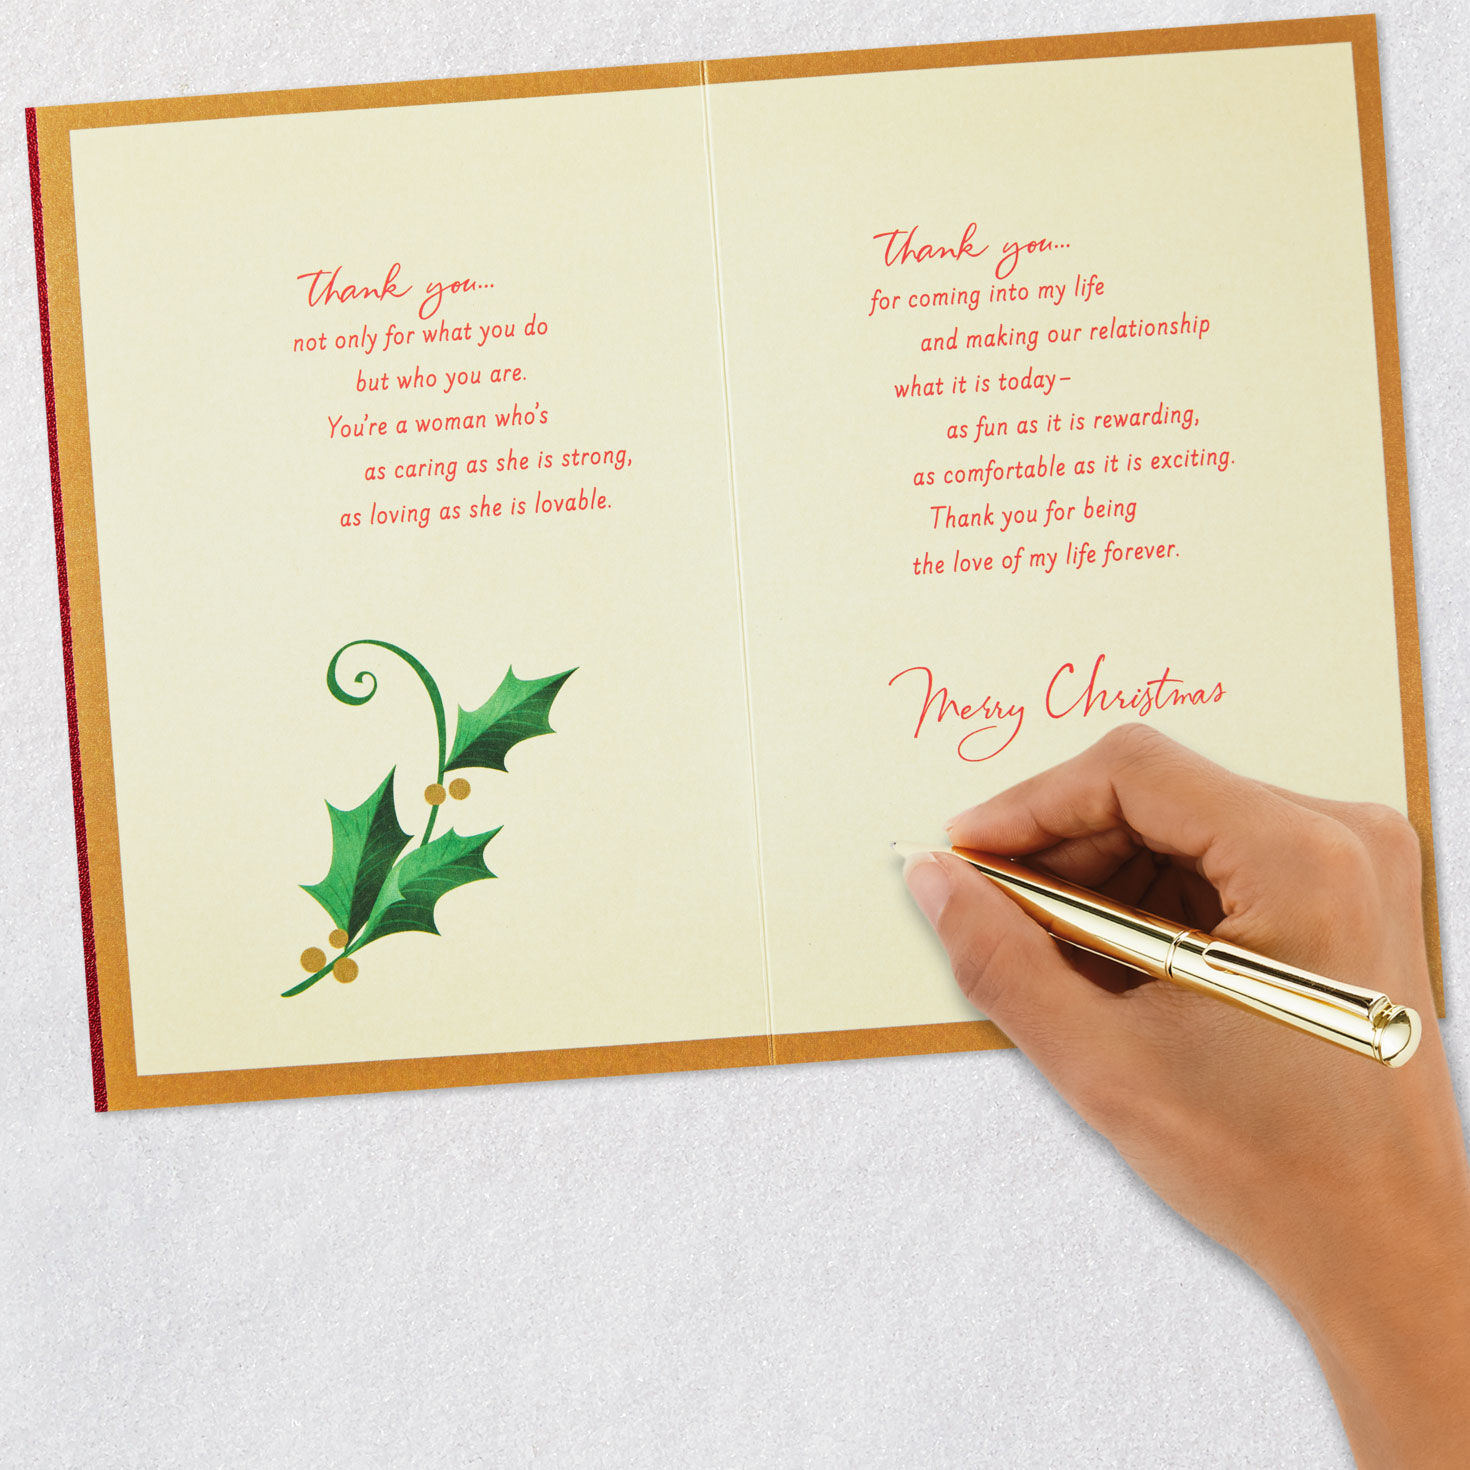 Thank you...
not only for what you do
but who you are.
You're a woman who's
as caring as she is strong,
as loving as she is lovable.
Thank you...
for coming into my life
and making our relationship
what it is today–
as fun as it is rewarding,
as comfortable as it is exciting.
Thank you for being
the love of my life forever.
Merry Christmas